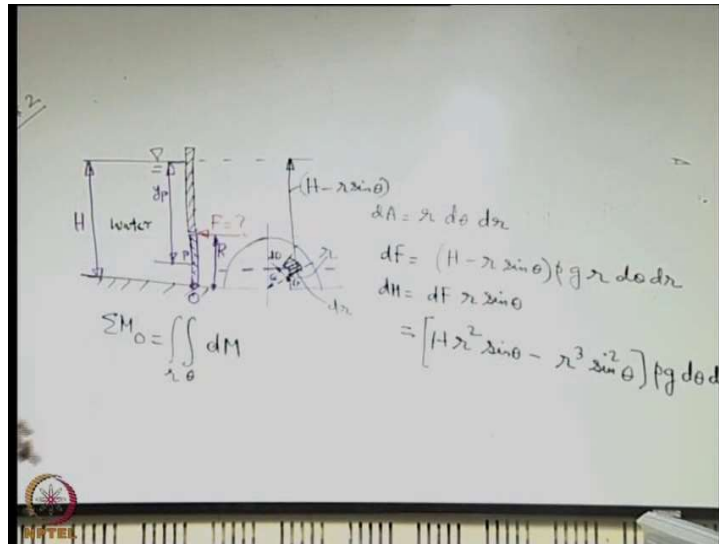 H
water
yp
F = ?
P
R
O
(H - r sinθ)
dθ
θ
r
dr
dA = r dθ dr
dF = (H - r sinθ) ρ g r dθ dr
dM = dF r sinθ
= [H r² sinθ - r³ sin²θ] ρg dθ d
ΣM₀ = ∫∫ dM
r θ
NPTEL